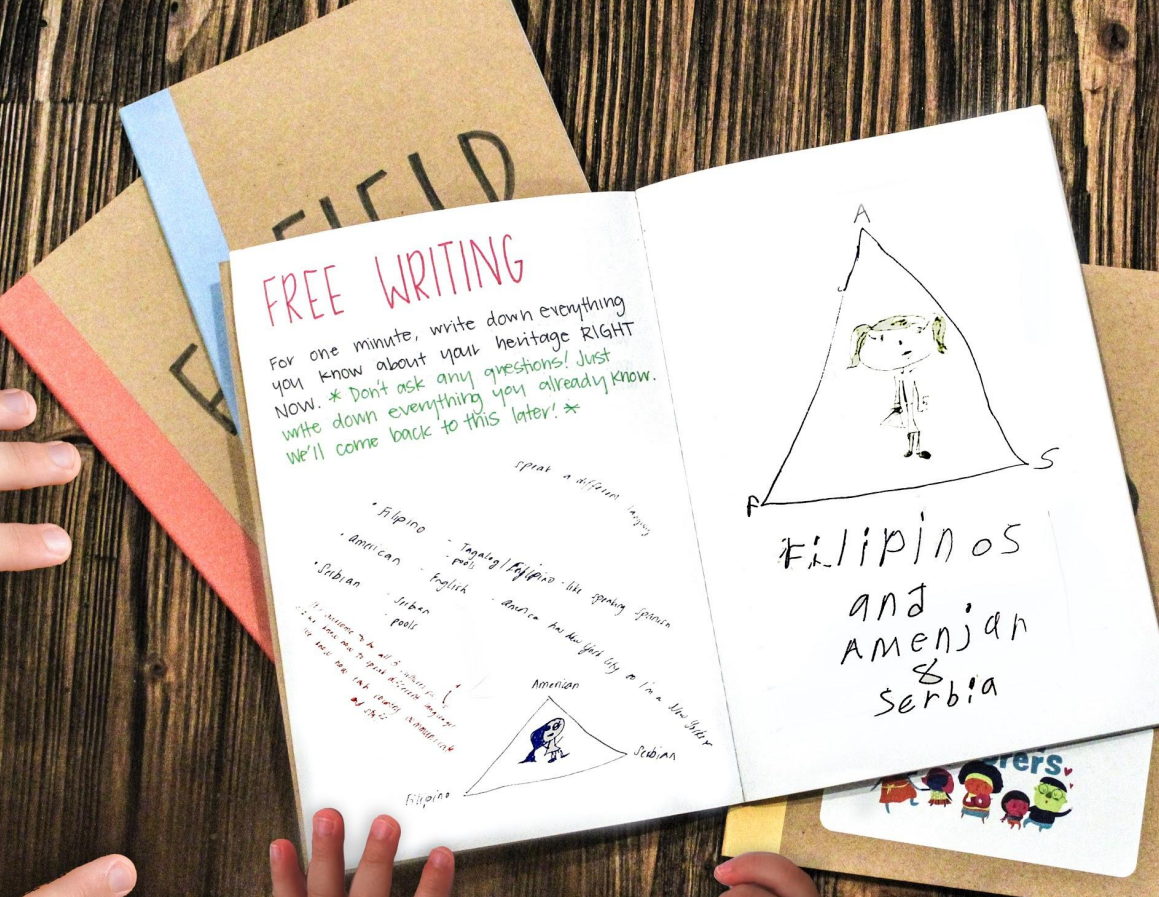 FIELD
FREE WRITING
For one minute, write down everything
you know about your heritage RIGHT
NOW. * Don't ask any questions! Just
write down everything you already know.
We'll come back to this later! *
speak a different
• Filipino
- Tagalog/Filipino - like speaking Spanish
- pools
• american
- English
- america has New York City so I'm a New Yorker
• Serbian
- Serbian
- pools
to be all 3 cultures
how to speak different language
American
Serbian
Filipino
A
F
S
Filipinos
and
Amenjan
&
Serbia